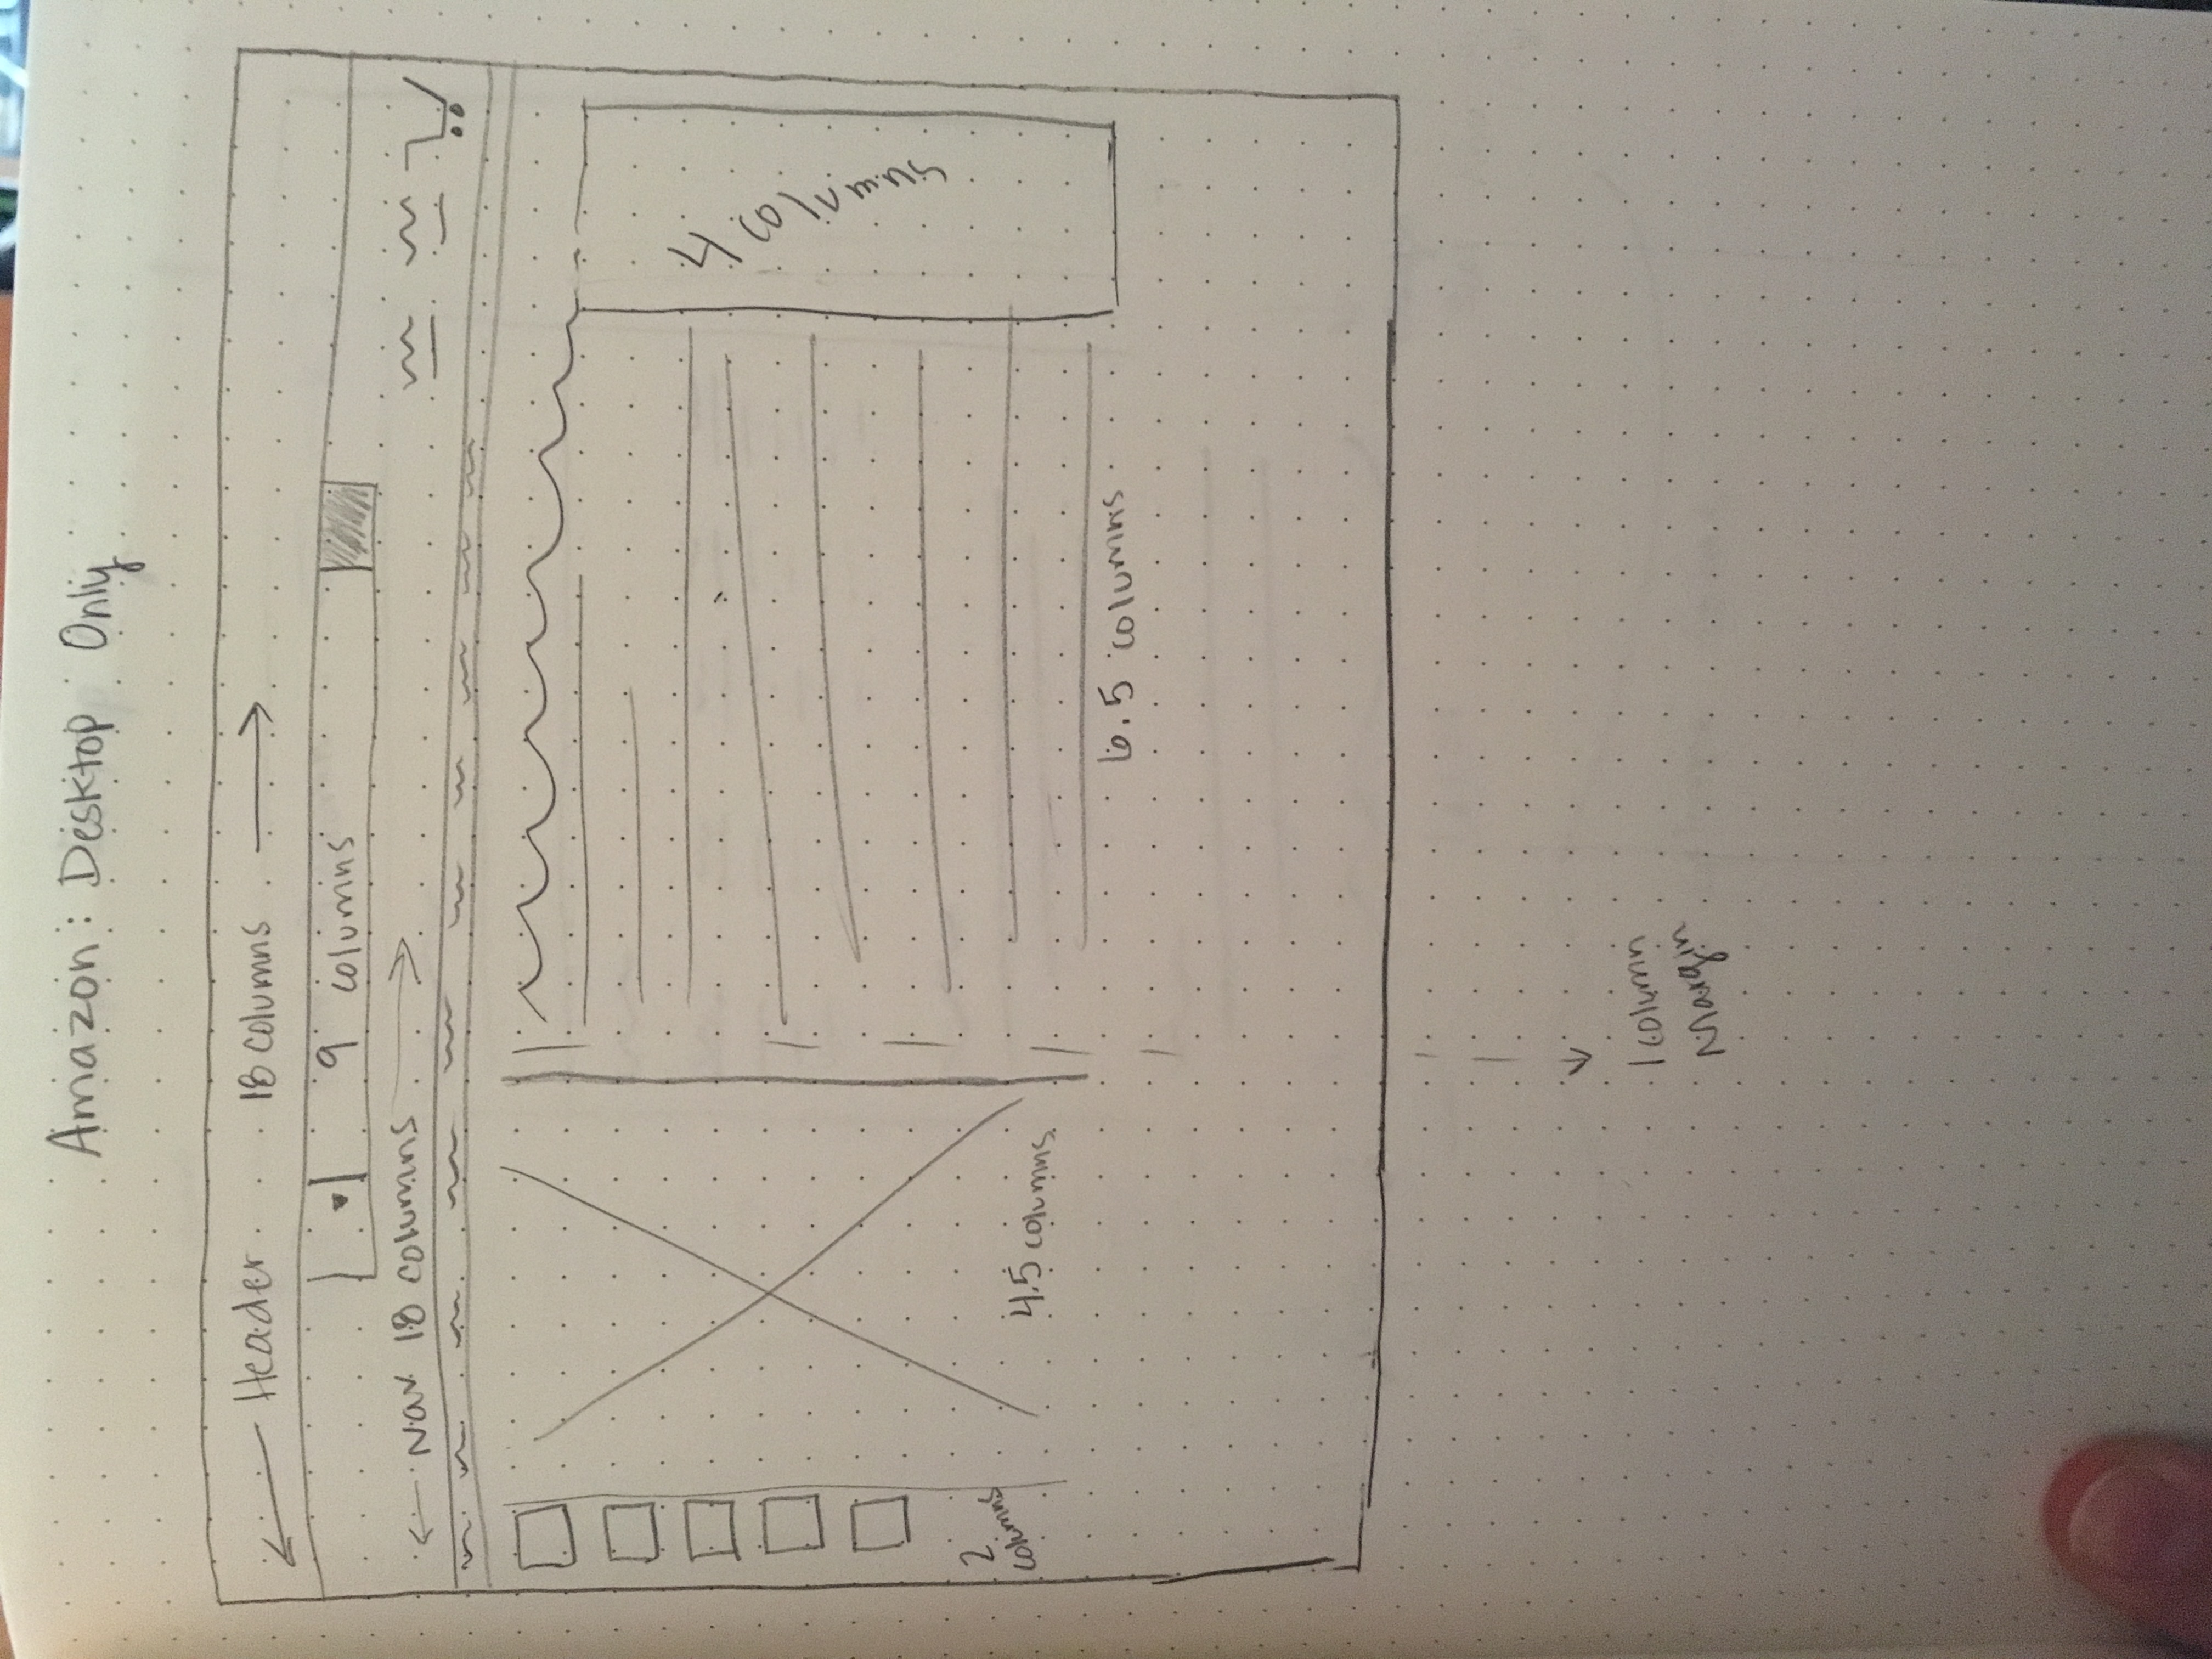 Amazon: Desktop Only
Header 18 columns
9 columns
Nav 18 columns
4 columns
2
columns
4.5 columns
6.5 columns
1 column
Margin